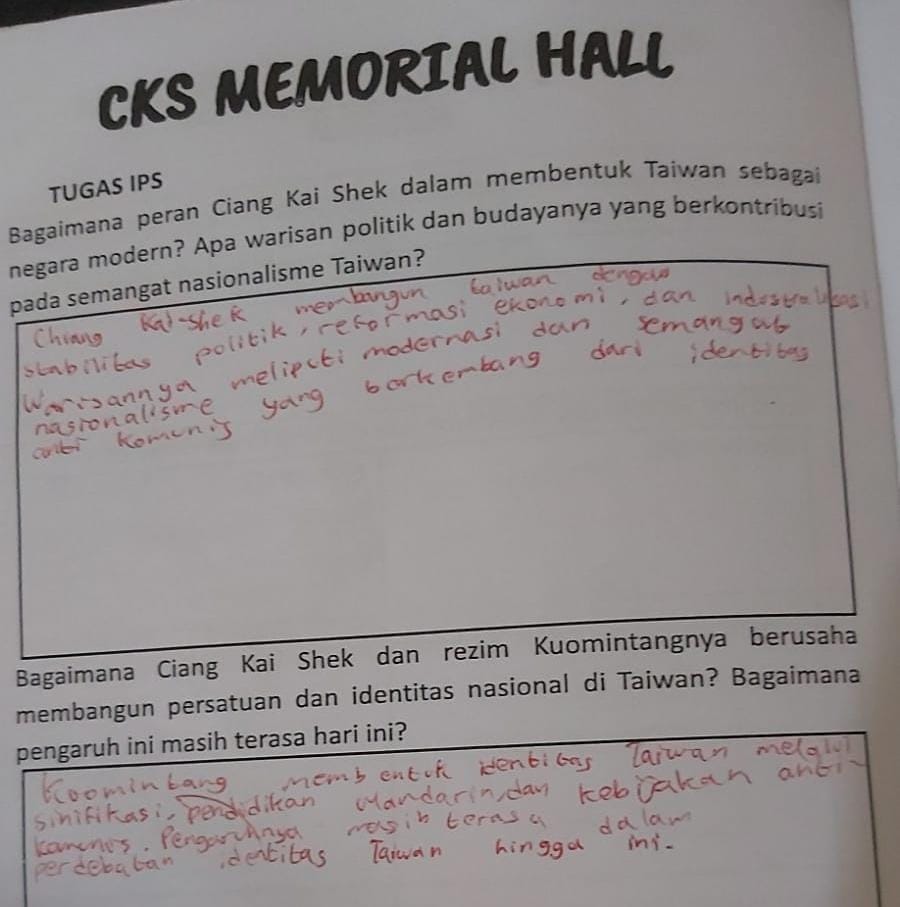 CKS MEMORIAL HALL
TUGAS IPS
Bagaimana peran Ciang Kai Shek dalam membentuk Taiwan sebagai
negara modern? Apa warisan politik dan budayanya yang berkontribusi
pada semangat nasionalisme Taiwan?
Chiang Kai-shek membangun taiwan dengan
stabilitas politik, reformasi ekonomi, dan industralisasi
Warisannya meliputi modernasi dan semangat
nasionalisme yang berkembang dari identitas
anti komunis
Bagaimana Ciang Kai Shek dan rezim Kuomintangnya berusaha
membangun persatuan dan identitas nasional di Taiwan? Bagaimana
pengaruh ini masih terasa hari ini?
Koomintang membentuk identitas Taiwan melalui
sinifikasi, pendidikan Mandarin, dan kebijakan anti-
komunis. Pengaruhnya masih terasa dalam
perdebatan identitas Taiwan hingga ini.